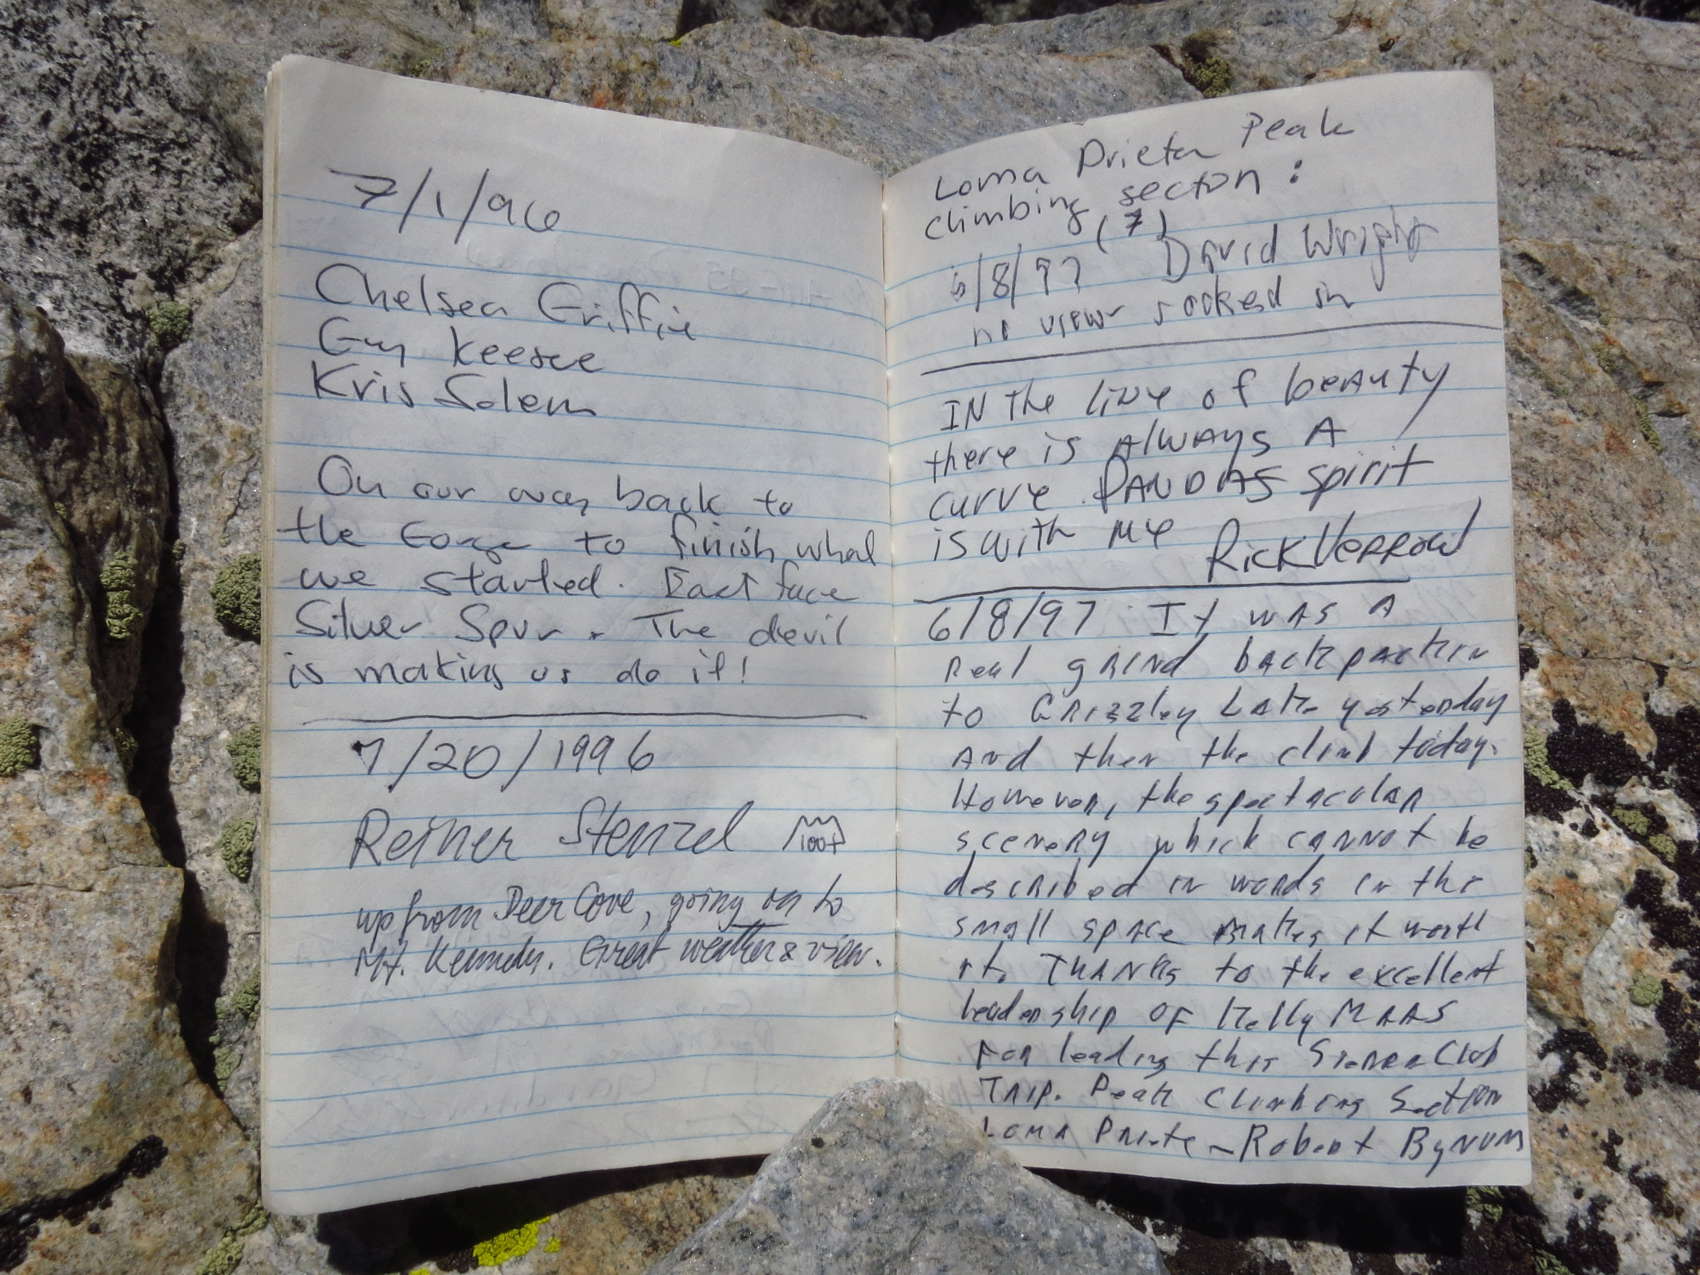 7/1/96
Chelsea Griffin
Guy Keesee
Kris Solem
On our way back to
the Gorge to finish what
we started. East face
Silver Spur. The devil
is making us do it!
7/20/1996
Reiner Stenzel 100+
up from Deer Cove, going on to
Mt. Kennedy. Great weather & view.
Loma Prieta Peak
climbing secton:
(7)
6/8/97 David Wright
no view socked in
IN the line of beauty
there is Always A
curve. PANDAS spirit
is with me
Rick
6/8/97 It was A
real grind backpackin
to Grizzley Lake yesterday
And then the climb today.
However, the spectacular
scenery which cannot be
described in words in this
small space makes it worth
it. THANKS to the excellent
leadership of Kelly MAAS
For leading this Sierra Club
Trip. Peak Climbing Section
Loma Priete - Robert Bynum